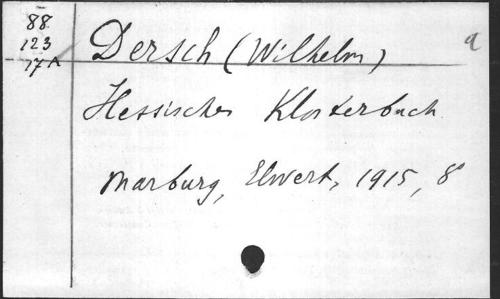 88
123
17A
Dersch (Wilhelm) a
Hessisches Klosterbuch
Marburg, Elwert, 1915, 8°